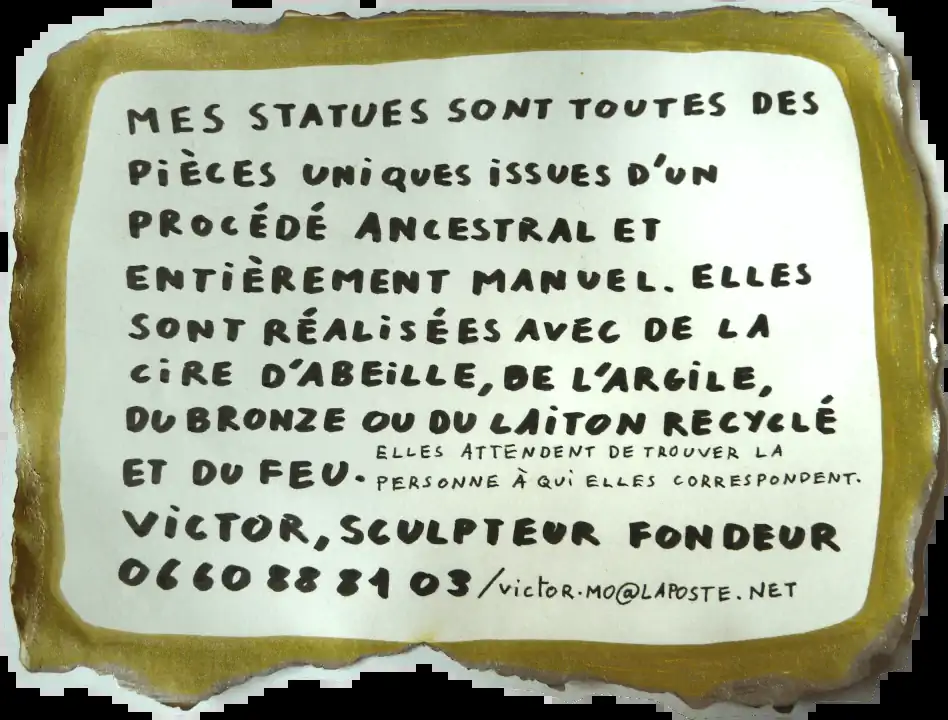 MES STATUES SONT TOUTES DES
PIÈCES UNIQUES ISSUES D'UN
PROCÉDÉ ANCESTRAL ET
ENTIÈREMENT MANUEL. ELLES
SONT RÉALISÉES AVEC DE LA
CIRE D'ABEILLE, DE L'ARGILE,
DU BRONZE OU DU LAITON RECYCLÉ
ET DU FEU. ELLES ATTENDENT DE TROUVER LA
PERSONNE À QUI ELLES CORRESPONDENT.
VICTOR, SCULPTEUR FONDEUR
06 60 88 81 03 / VICTOR.MO@LAPOSTE.NET